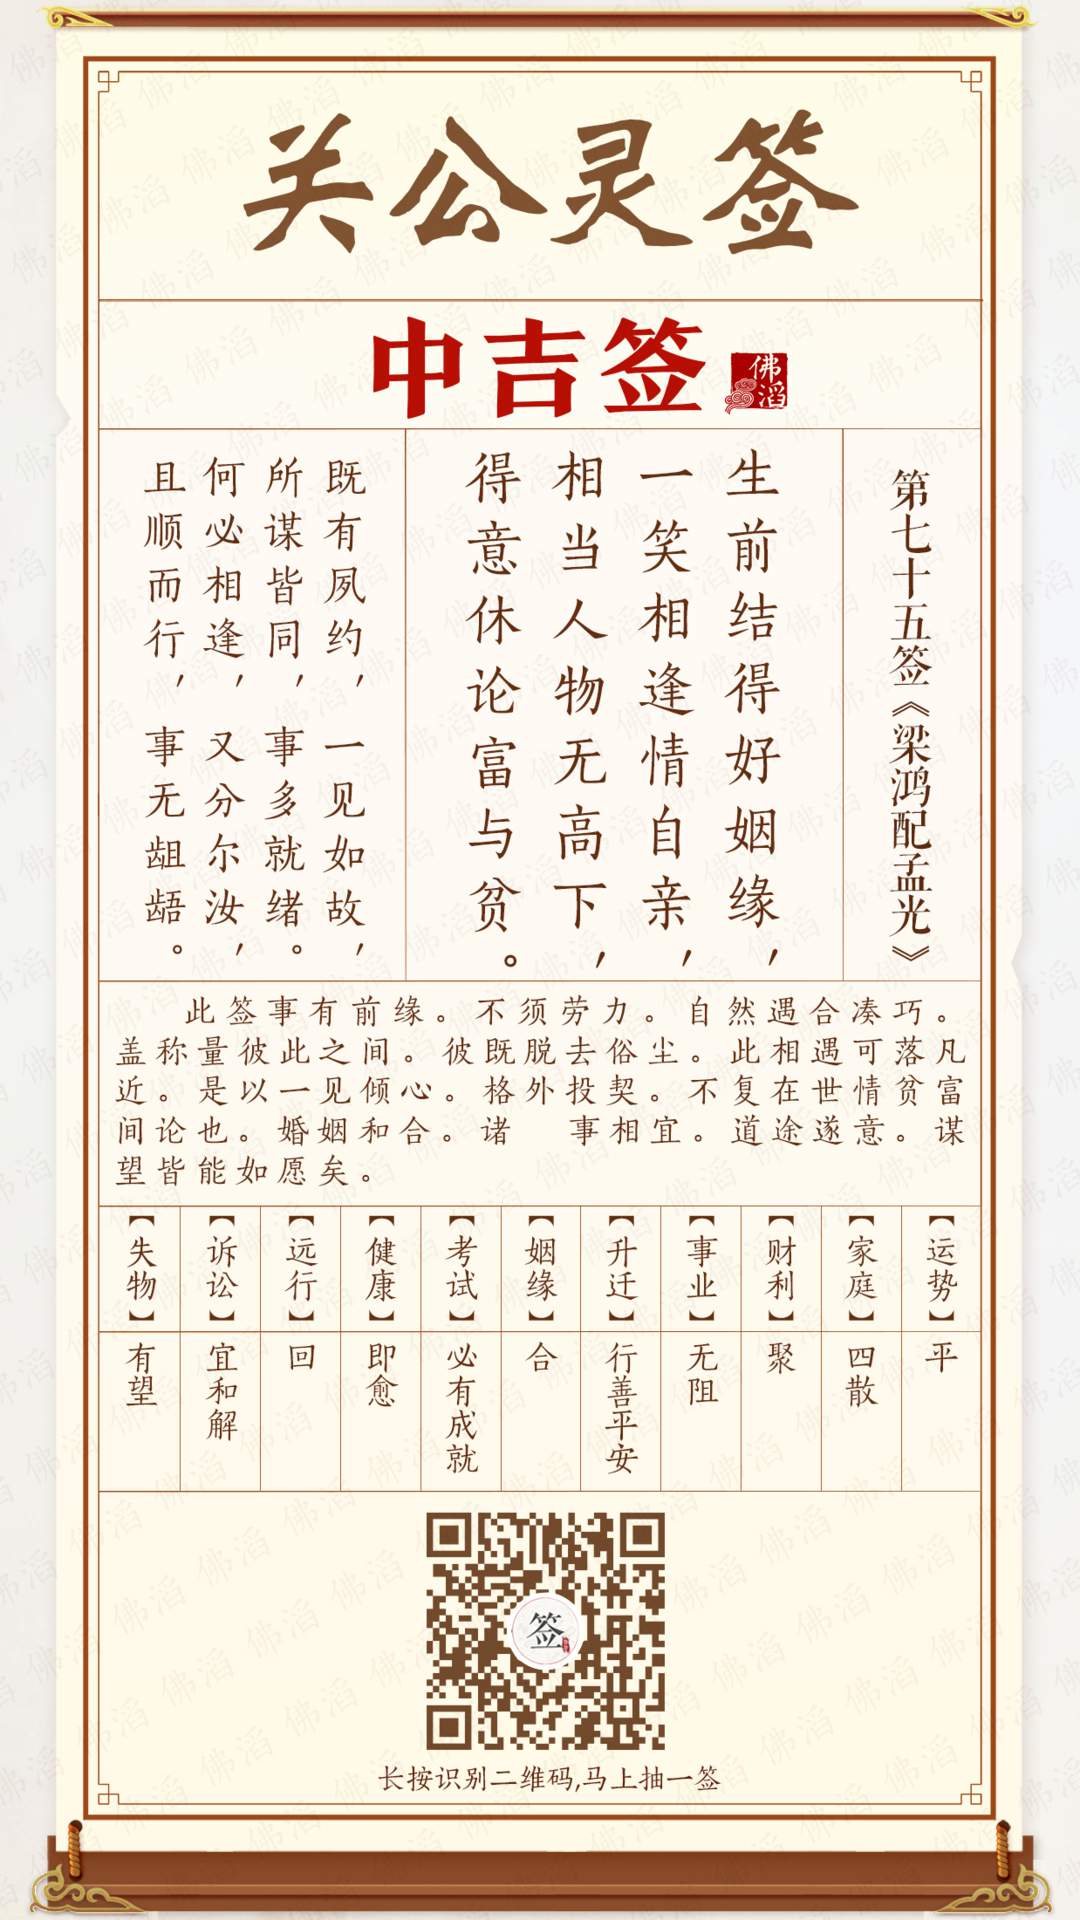 关公灵签
中吉签
佛滔
第七十五签《梁鸿配孟光》
生前结得好姻缘，
一笑相逢情自亲，
相当人物无高下，
得意休论富与贫。
既有夙约，一见如故，
所谋皆同，事多就绪。
何必相逢，又分尔汝，
且顺而行，事无龃龉。
此签事有前缘。不须劳力。自然遇合凑巧。
盖称量彼此之间。彼既脱去俗尘。此相遇可落凡
近。是以一见倾心。格外投契。不复在世情贫富
间论也。婚姻和合。诸 事相宜。道途遂意。谋
望皆能如愿矣。
【运势】平
【家庭】四散
【财利】聚
【事业】无阻
【升迁】行善平安
【姻缘】合
【考试】必有成就
【健康】即愈
【远行】回
【诉讼】宜和解
【失物】有望
签
长按识别二维码,马上抽一签